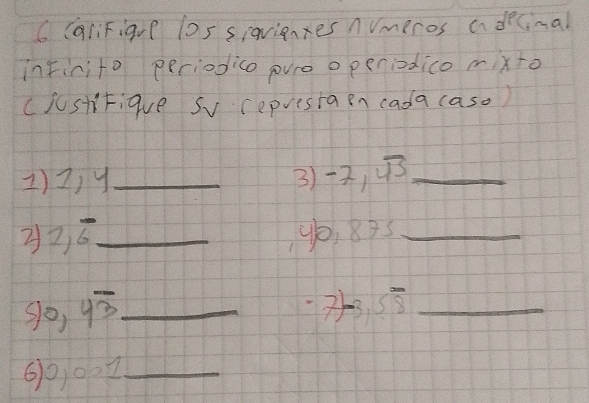 6 Carifique los siguientes números en decimal
infinito periodico puro o periodico mixto
(Justifique su repuesta en cada caso)
1) 1,4______ 3) -2,4̅3̅______
2) 2,6̅______ 4) 0,875______
5) 0,43̅______ -7) -3,58̅______
6) 0,001______